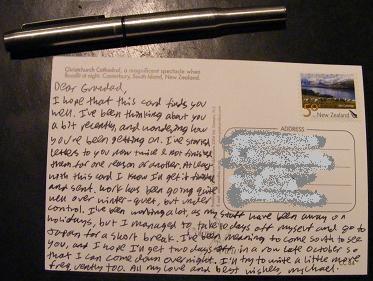 Christchurch Cathedral, a magnificent spectacle when
floodlit at night. Canterbury, South Island, New Zealand.
Dear Grandad,
I hope that this card finds you
well. I've been thinking about you
a bit recently, and wondering how
you're been getting on. I've started
letters to you now twice & not finished
them for one reason or another. At least
with this card I know I'll get it finished
and sent. Work has been going quite
well over winter-quiet, but under
control. I've been working a lot, as my staff have been away on
holidays, but I managed to take 10 days off myself and go to
Japan for a short break. I've been meaning to come south to see
you, and I hope I'll get two days off in a row late October so
that I can come down overnight. I'll try to write a little more
frequently too. All my love and best wishes, Michael.
50c
New Zealand
ADDRESS